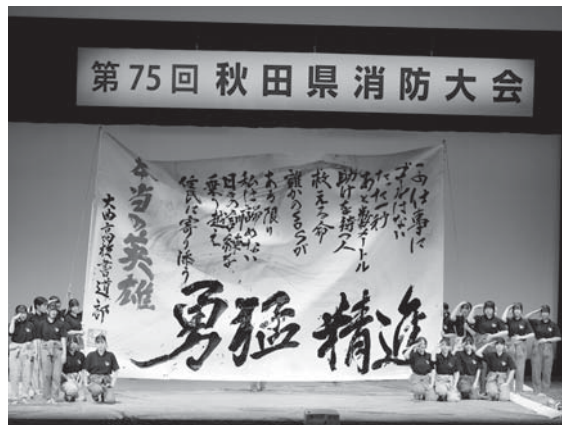 第75回 秋田県消防大会
この仕事に
ゴールはない
たった一秒
あと数メートル
助けを待つ人
救える命
誰かの今日が
ある限り
私は諦めない
日々の訓練を
乗り越え
住民に寄り添う
勇猛 精進
本当の英雄
大曲高校書道部